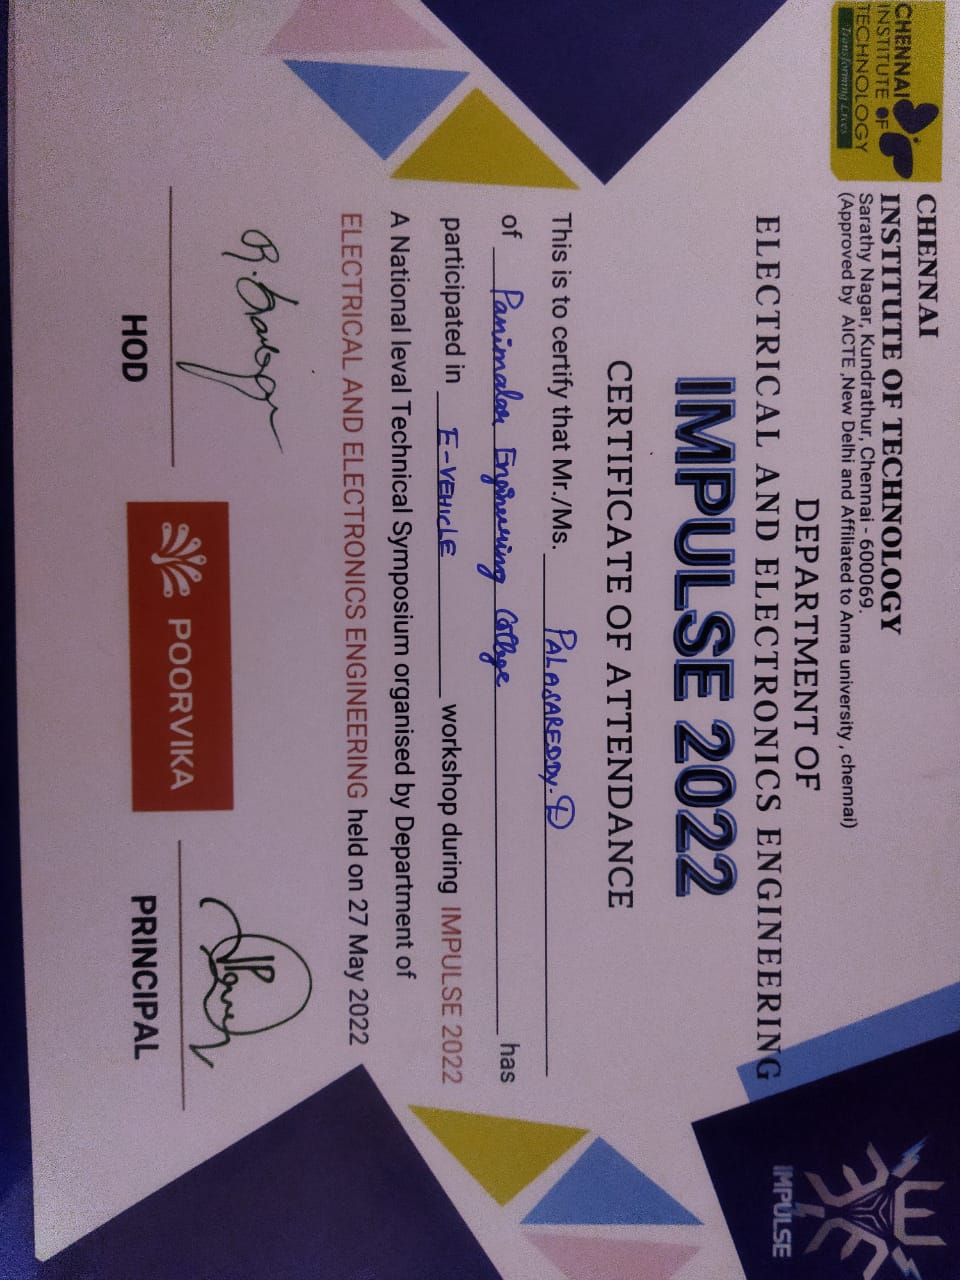 CHENNAI
INSTITUTE OF
TECHNOLOGY
Transforming Lives
CHENNAI
INSTITUTE OF TECHNOLOGY
Sarathy Nagar, Kundrathur, Chennai - 600069.
(Approved by AICTE ,New Delhi and Affiliated to Anna university , chennai)
IMPULSE
DEPARTMENT OF
ELECTRICAL AND ELECTRONICS ENGINEERING
IMPULSE 2022
CERTIFICATE OF ATTENDANCE
This is to certify that Mr./Ms. PALASAREDDY.D
of Panimalar Engineering College has
participated in E-VEHICLE workshop during IMPULSE 2022
A National leval Technical Symposium organised by Department of
ELECTRICAL AND ELECTRONICS ENGINEERING held on 27 May 2022
HOD
POORVIKA
PRINCIPAL